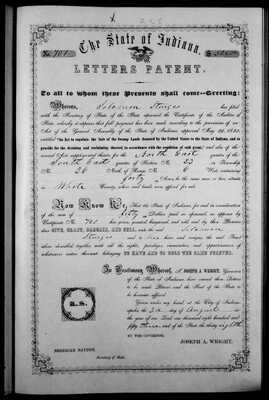 The State of Indiana.
No. 701
LETTERS PATENT.
To all to whom these Presents shall come—Greeting:
Whereas, Solomon Sturges has filed
with the Secretary of State of the State aforesaid the Certificate of the Auditor of
State, whereby it appears that full payment has been made according to the provisions of an
Act of the General Assembly of the State of Indiana approved May
"An Act to regulate the Sale of the Swamp Lands donated by the United States to the State of Indiana, and to
provide for the draining and reclaiming thereof in accordance with the condition of said grant," and also of the
Acts supplemental thereto for the North East quarter of the
South East quarter of Section No. 23 in Township
No. 28 North of Range No. 6 West containing
forty Acres be the same more or less situate
in White County when and lands were offered for sale.
Now Know Ye, That the State of Indiana for and in consideration
of the sum of fifty Dollars paid as aforesaid, as appears by
Certificate No. 701 has given, granted, bargained and sold, and by these Presents
does GIVE, GRANT, BARGAIN, AND SELL, unto the said Solomon
Sturges and to his heirs and assigns the said Tract
above described together with all the rights, privileges, immunities, and appurtenances of
whatsoever nature thereunto belonging TO HAVE AND TO HOLD THE SAME FOREVER.
In Testimony Whereof, I, JOSEPH A. WRIGHT, Governor
of the State of Indiana, have caused these Letters
to be made Patent and the Seal of the State to
be hereunto affixed.
Given under my hand at the City of Indianapolis
the 3d day of August
the year of our Lord one thousand eight hundred and
fifty Three and of the State the thirty eighth
BY THE GOVERNOR,
JOSEPH A. WRIGHT.
Secretary of State.